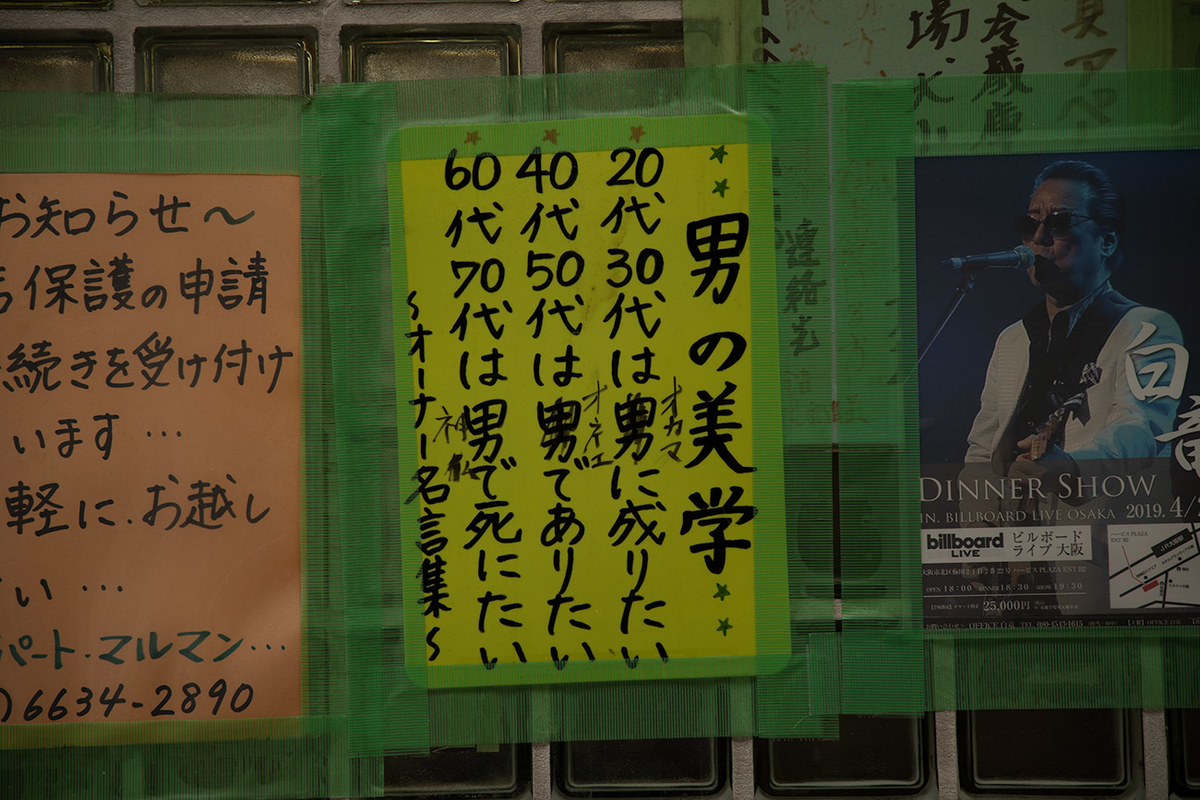 お知らせ～
保護の申請
続きを受け付け
います…
軽に、お越し
い…
パート・マルマン…
)6634-2890
男の美学
20代30代は男に成りたい
オカマ
40代50代は男でありたい
オネエ
60代70代は男で死にたい
神仏
～オーナー名言集～
連絡先
場
冷蔵庫
DINNER SHOW
IN BILLBOARD LIVE OSAKA 2019.4/
billboard LIVE
ビルボード
ライブ大阪
OPEN 18:00
SHOW 19:30
25,000円
白